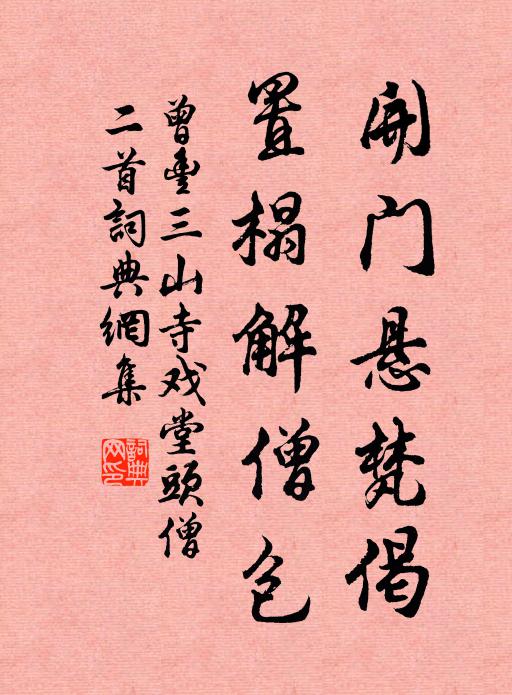 开门悬梵偈
置榻解僧包
曾豊三山寺戏堂頭僧
二首詞典網集
詞典网印